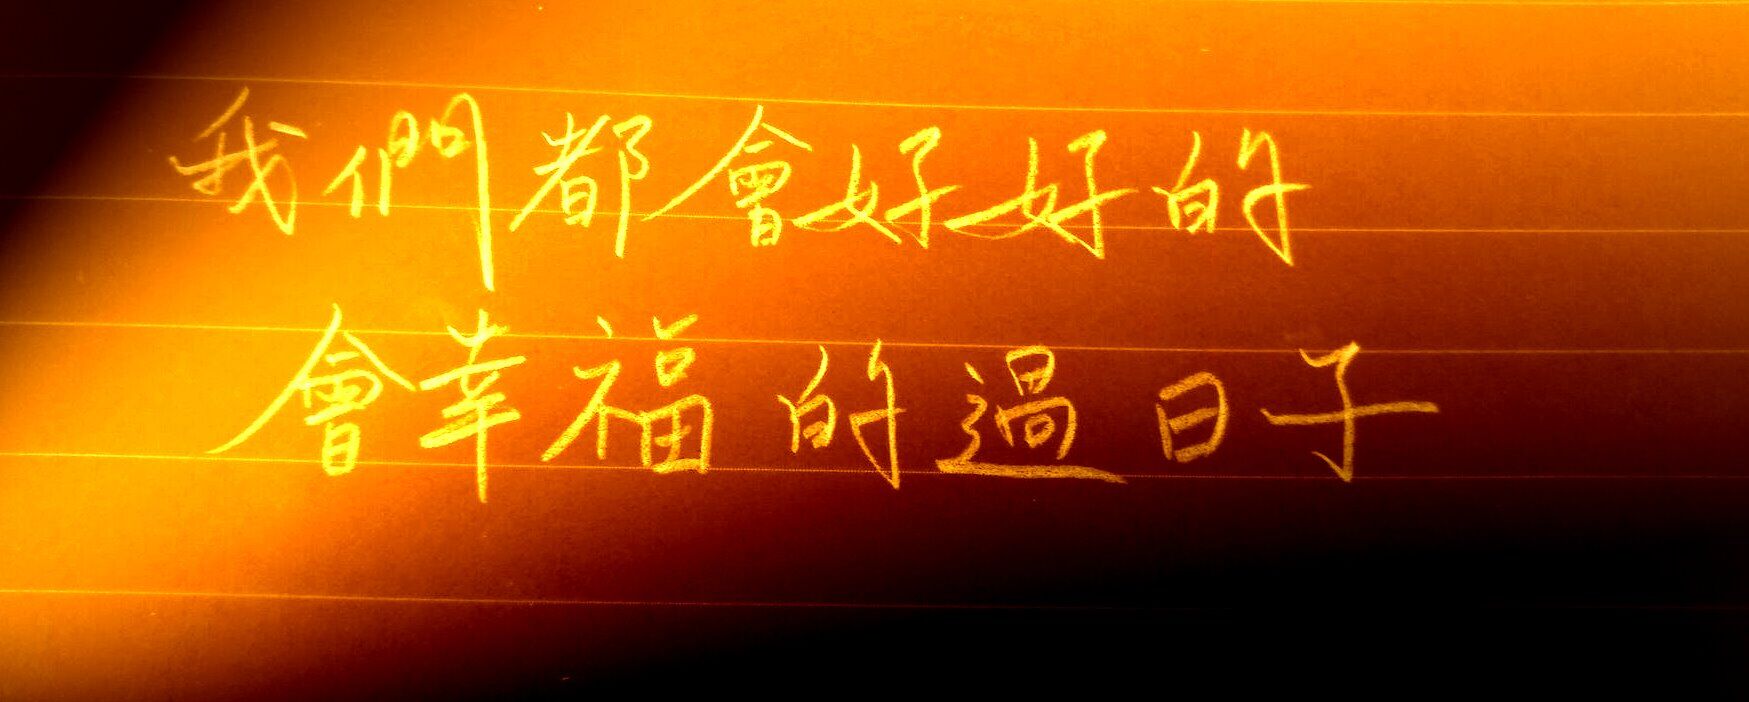 我們都會好好的
會幸福的過日子